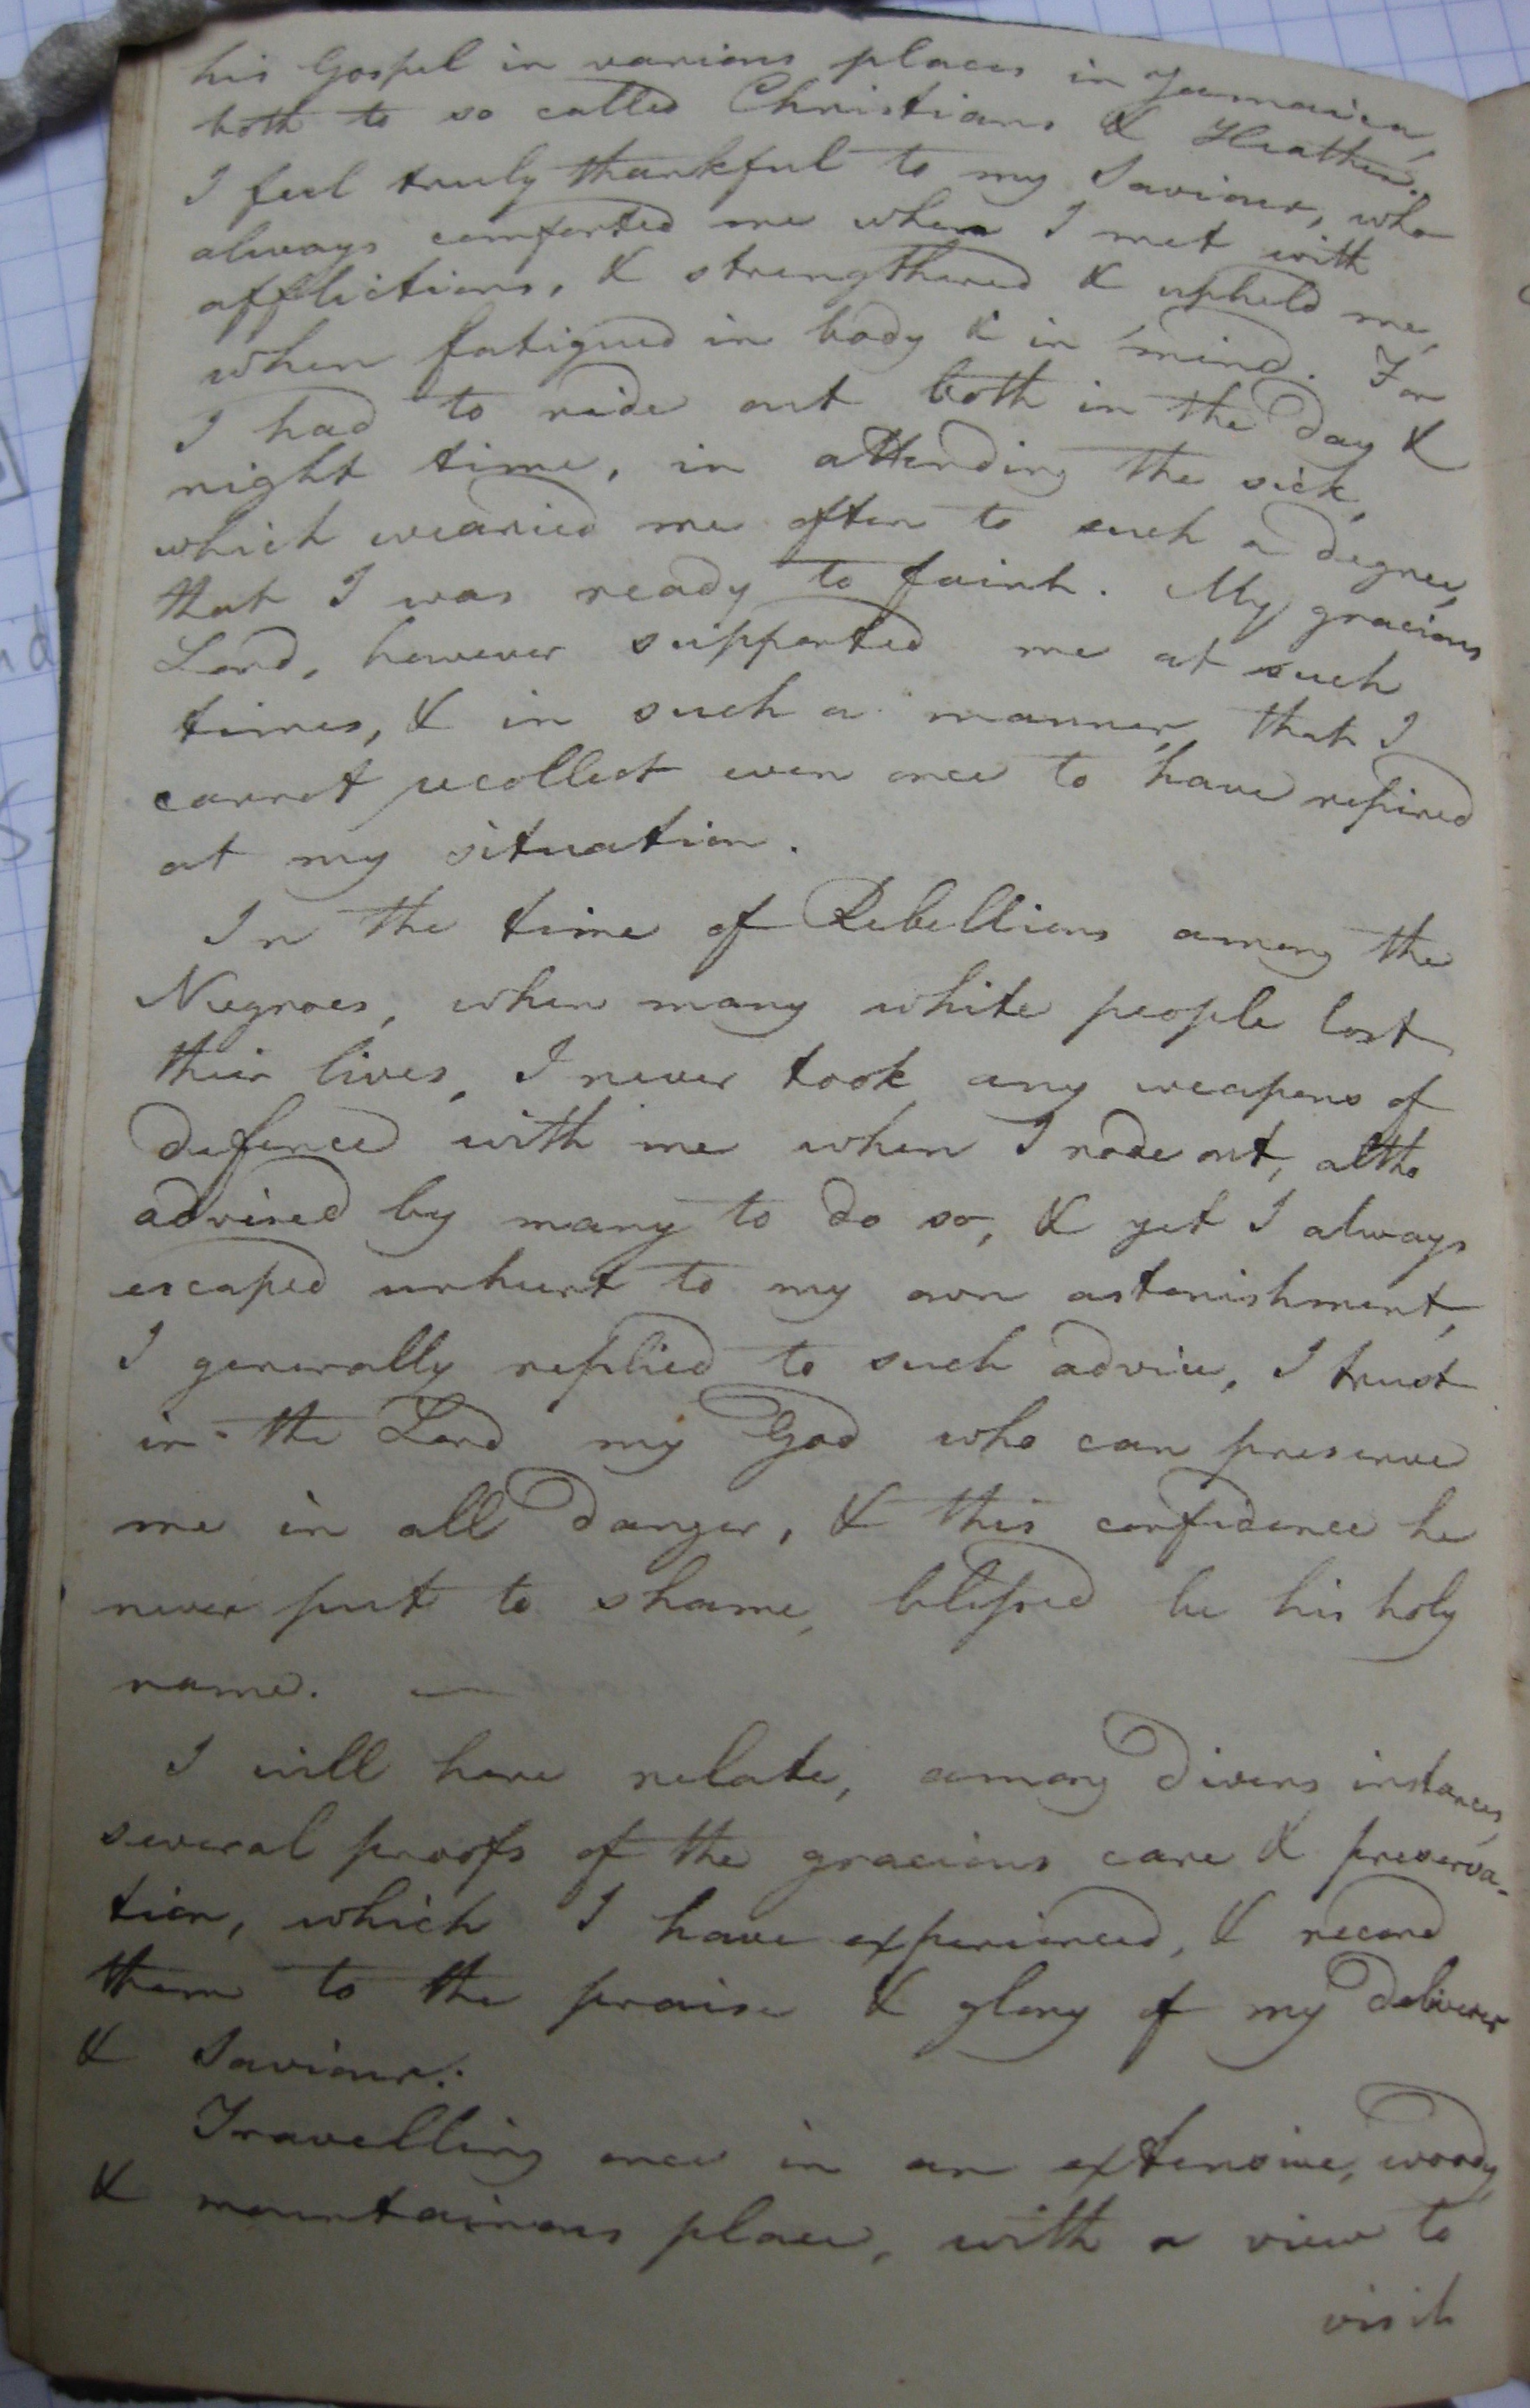 his Gospel in various places in Jamaica,
both to so called Christians & Heathen.
I feel truly thankful to my Saviour, who
always comforted me when I met with
afflictions, & strengthened & upheld me,
when fatigued in body & in mind. For
I had to ride out both in the day &
night time, in attending the sick,
which wearied me often to such a degree,
that I was ready to faint. My gracious
Lord, however supported me at such
times, & in such a manner, that I
cannot recollect even once to have repined
at my situation.
In the time of Rebellions among the
Negroes, when many white people lost
their lives, I never took any weapens of
defence with me when I rode out, altho
advised by many to do so, & yet I always
escaped unhurt to my own astonishment,
I generally replied to such advice, I trust
in the Lord my God who can preserve
me in all danger, & this confidence he
never put to shame, blessed be his holy
name. —
I will here relate, among divers instances,
several proofs of the gracious care & preserva-
tion, which I have experienced, & record
them to the praise & glory of my deliverer
& Saviour.
Travelling once in an extensive, woody,
& mountainous place, with a view to
visit